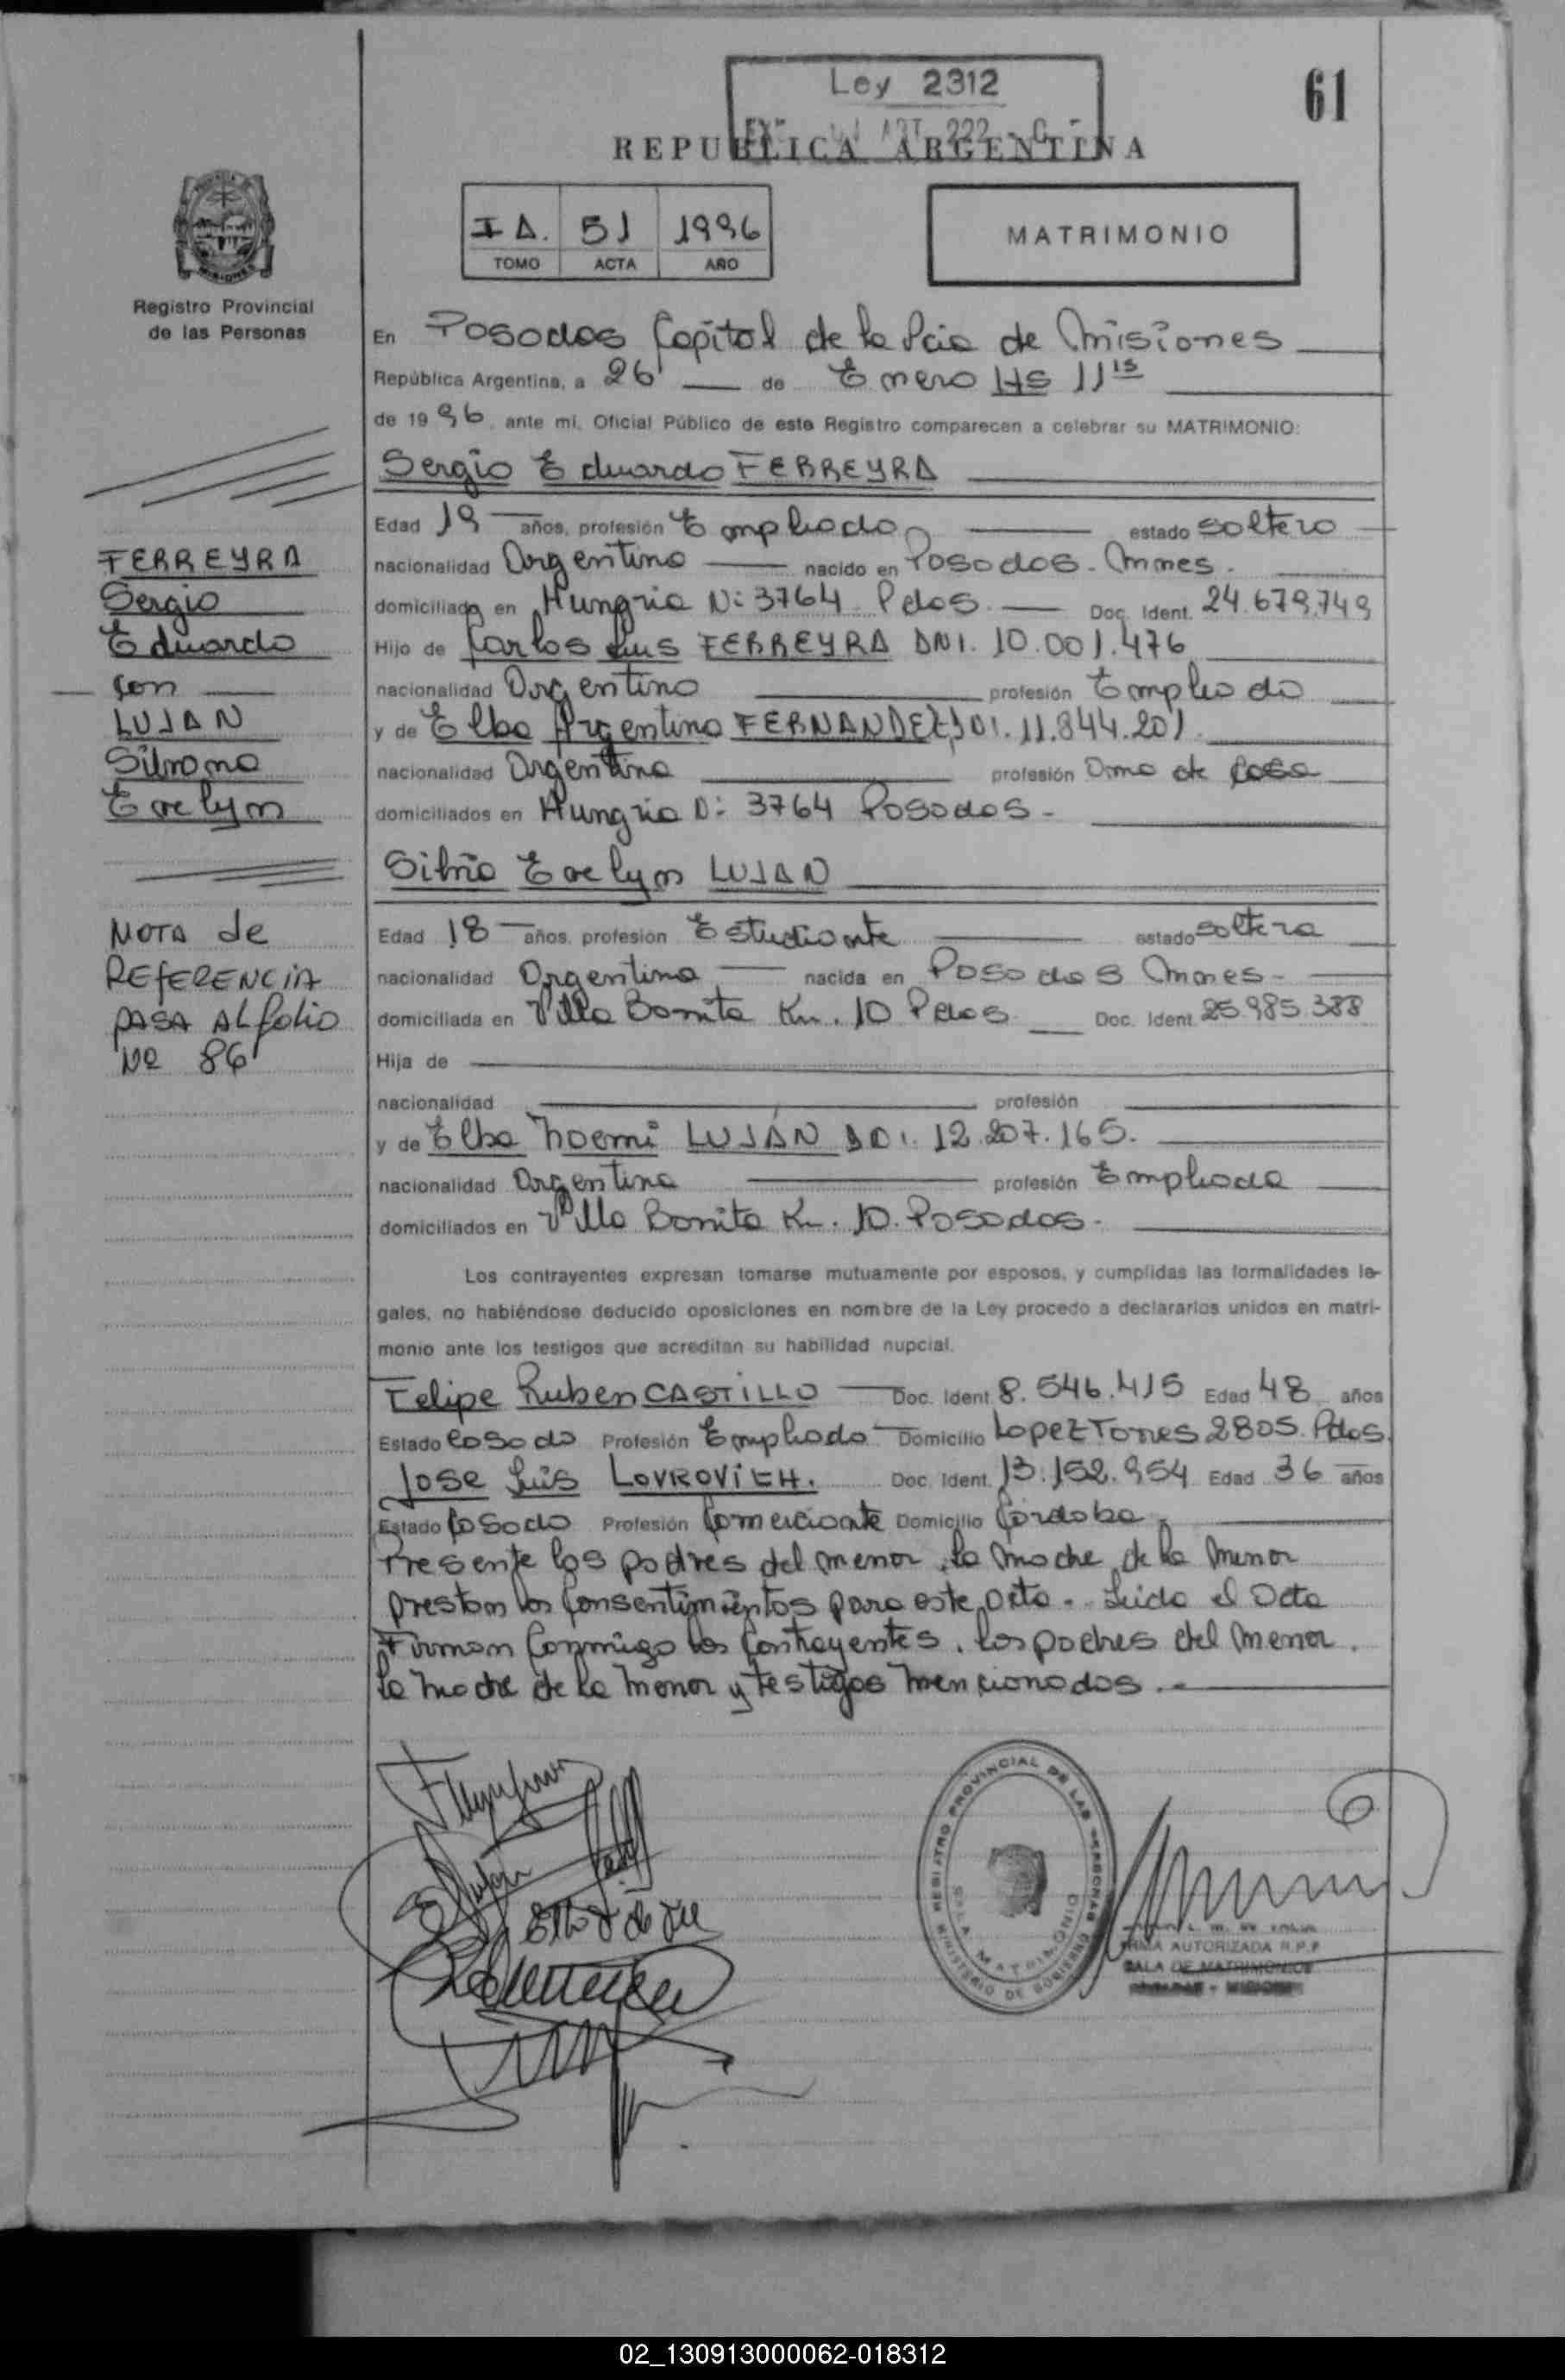 Ley 2312
61
REPUBLICA ARGENTINA
I A. 51 1996
TOMO ACTA AÑO
MATRIMONIO
Registro Provincial
de las Personas
En Posadas Capital de la Pcia de Misiones
República Argentina, a 26 de Enero HS 11 15
de 1996, ante mi, Oficial Público de este Registro comparecen a celebrar su MATRIMONIO:
Sergio Eduardo FERREYRA
Edad 19 años, profesión Empleado estado soltero
nacionalidad Argentina nacido en Posadas - Mnes.
domiciliado en Hungria Nº 3764 Pdas Doc. Ident. 24.679.749
Hijo de Carlos Luis FERREYRA DNI. 10.001.476
nacionalidad Argentino profesión Empleado
y de Elba Argentina FERNANDEZ DNI. 11.844.201
nacionalidad Argentina profesión Ama de Casa
domiciliados en Hungria Nº 3764 Posadas -
Silvia Evelyn LUJAN
Edad 18 años, profesion Estudiante estado soltera
nacionalidad Argentina nacida en Posadas Mnes -
domiciliada en Villa Bonita Km. 10 Pdas Doc. Ident. 25.985.388
Hija de
nacionalidad profesión
y de Elba Noemi LUJÁN DNI. 12.207.165.
nacionalidad Argentina profesión Empleada
domiciliados en Villa Bonita Km. 10. Posadas -
Los contrayentes expresan tomarse mutuamente por esposos, y cumplidas las formalidades le-
gales, no habiéndose deducido oposiciones en nombre de la Ley procedo a declararlos unidos en matri-
monio ante los testigos que acreditan su habilidad nupcial.
Felipe Ruben CASTILLO Doc. Ident. 8.546.415 Edad 48 años
Estado Casado Profesión Empleado Domicilio Lopez Torres 2805. Pdas.
Jose Luis LOVROVICH. Doc. Ident. 13.152.954 Edad 36 años
Estado Casado Profesión Comerciante Domicilio Córdoba
Presente los padres del menor, la madre de la menor
prestan los Consentimientos para este acto. Leida el Acta
Firman Conmigo los Contrayentes, los padres del menor,
la madre de la menor y testigos mencionados.-
FERREYRA
Sergio
Eduardo
Con
LUJAN
Silvana
Evelyn
NOTA de
REFERENCIA
PASA AL folio
Nº 86
REGISTRO PROVINCIAL DE LAS PERSONAS
SALA MATRIMONIO
MINISTERIO DE GOBIERNO
FIRMA AUTORIZADA R.P.P
SALA DE MATRIMONIOS
02_130913000062-018312